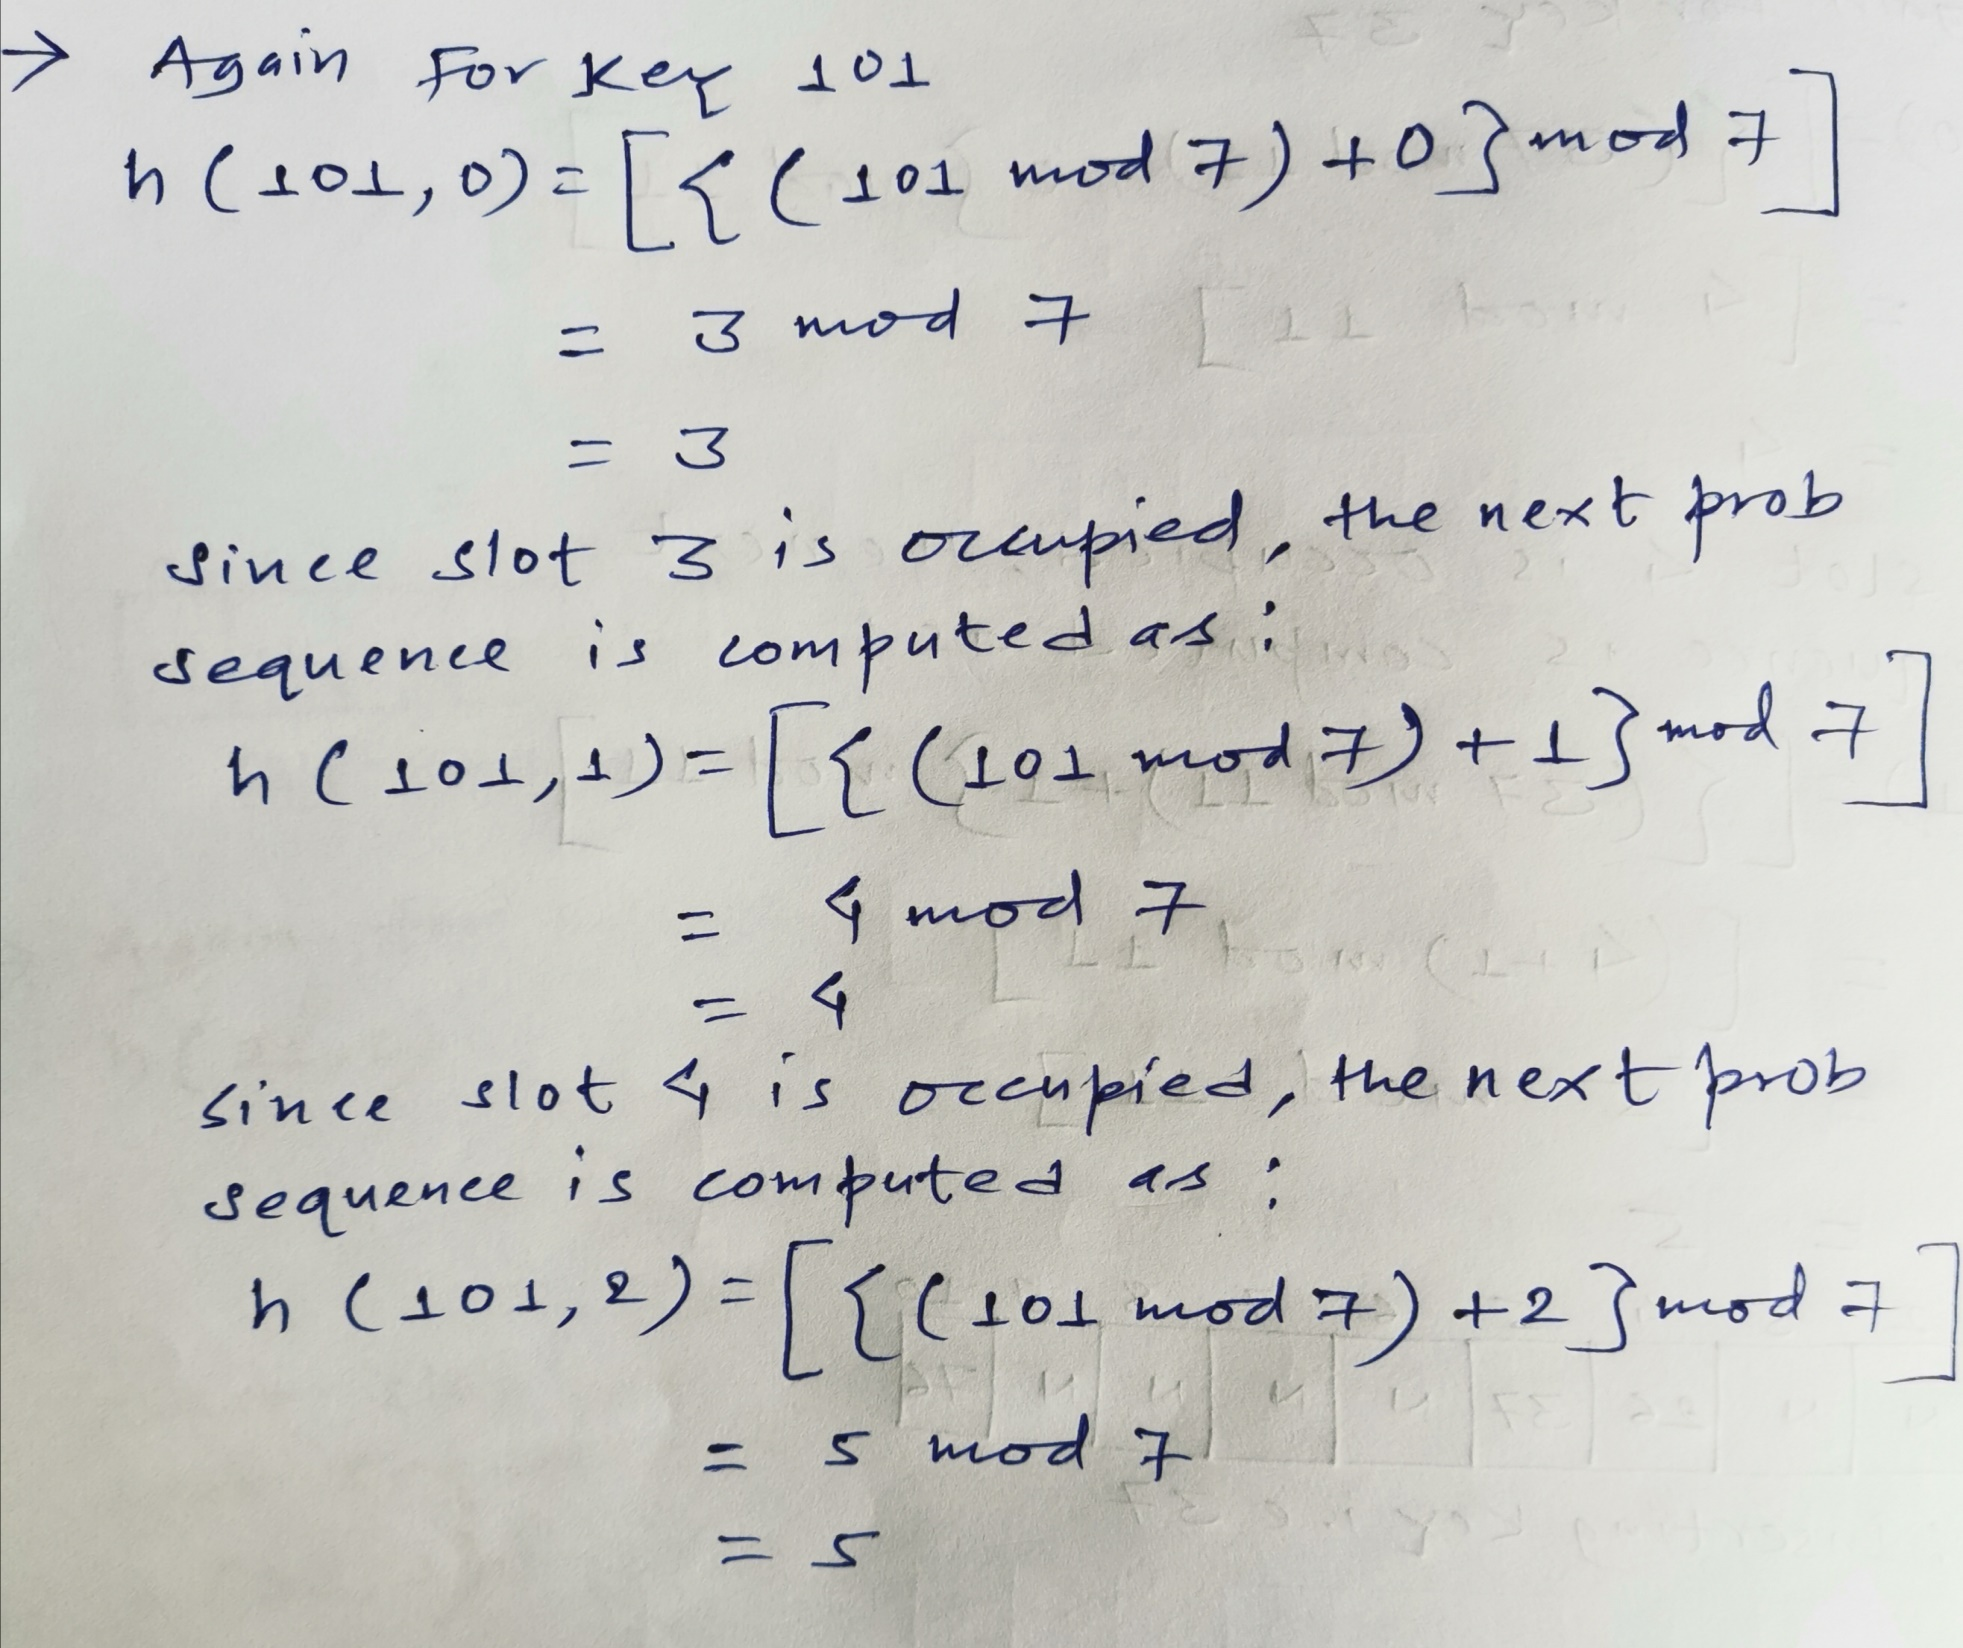 → Again For Key 101
h (101, 0) = [{(101 mod 7) + 0} mod 7]
= 3 mod 7
= 3
since slot 3 is occupied, the next prob
sequence is computed as :
h (101, 1) = [{(101 mod 7) + 1} mod 7]
= 4 mod 7
= 4
since slot 4 is occupied, the next prob
sequence is computed as :
h (101, 2) = [{(101 mod 7) + 2} mod 7]
= 5 mod 7
= 5